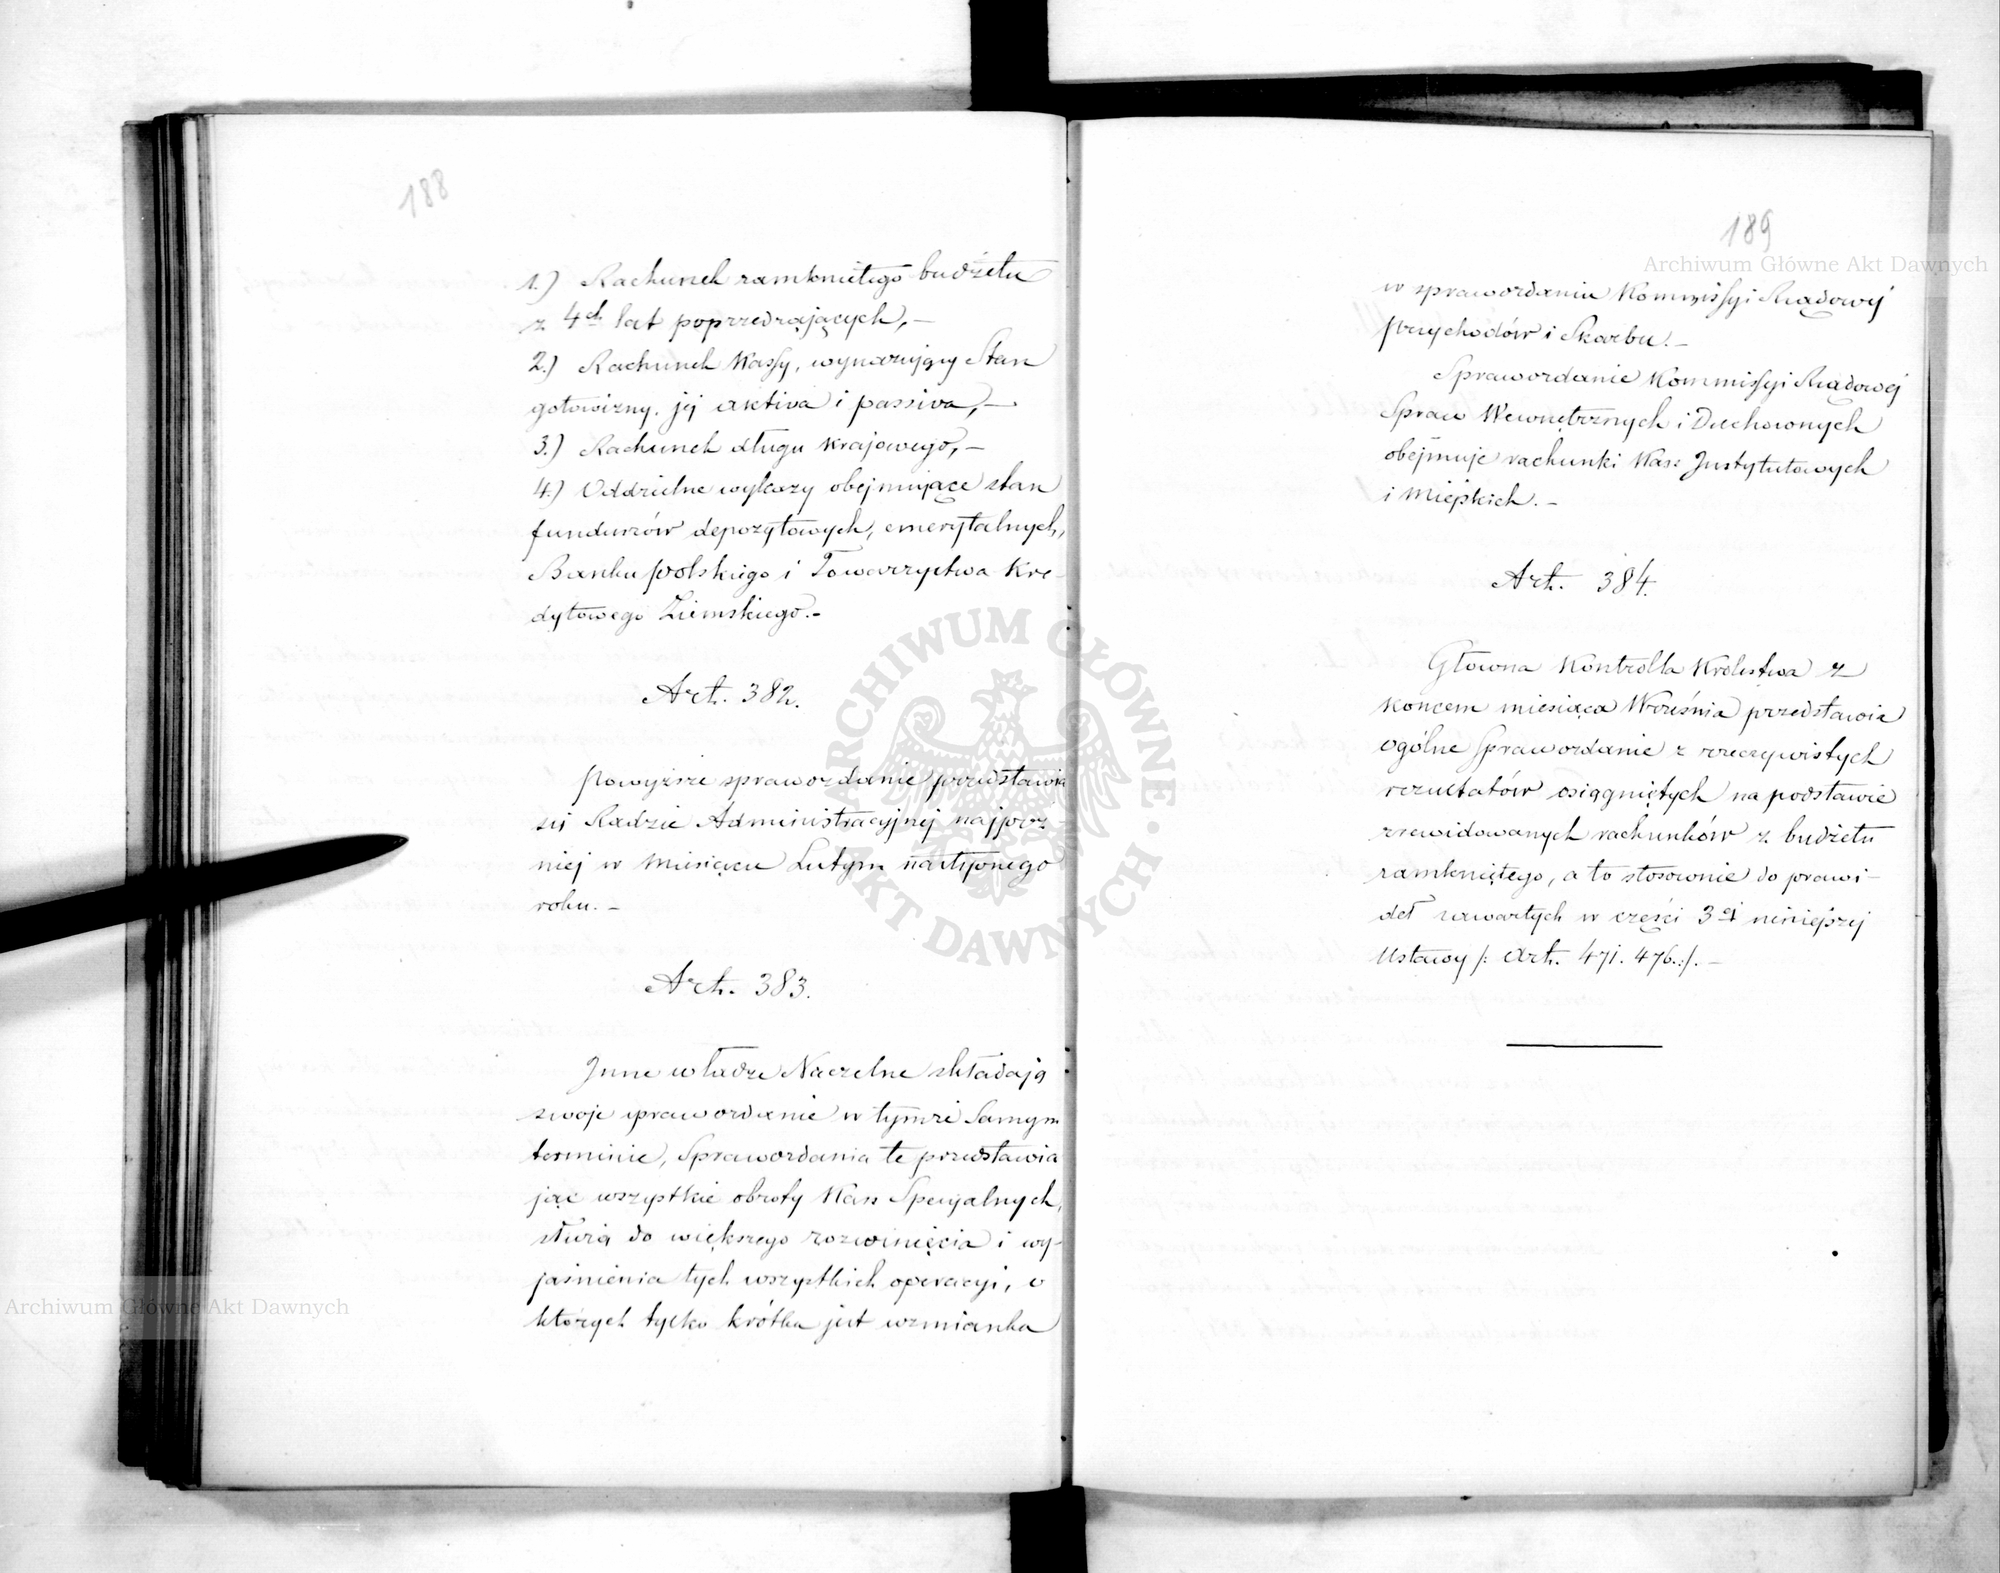 188
1.) Rachunek zamkniętego budżetu
z 4ch lat poprzedzających, —
2.) Rachunek Kassy, wykazujący Stan
gotowizny, jej aktiva i passiva, —
3.) Rachunek długu krajowego, —
4.) Oddzielne wykazy obejmujące stan
funduszów depozytowych, emerytalnych,
Banku polskiego i Towarzystwa Kre-
dytowego Ziemskiego. —
Art. 382.
Powyższe sprawozdanie przedstawia
się Radzie Administracyjnej najpóź-
niej w miesiącu Lutym następnego
roku. —
Art. 383.
Inne władze Naczelne składają
swoje sprawozdanie w tymże Samym
terminie, Sprawozdania te przedstawia
jąc wszystkie obroty Kass Specyalnych,
służą do większego rozwinięcia i wy-
jaśnienia tych wszystkich operacyi, o
których tylko krótka jest wzmianka
189
w sprawozdaniu Kommissyi Rządowej
przychodów i Skarbu. —
Sprawozdanie Kommissyi Rządowej
Spraw Wewnętrznych i Duchownych
obejmuje rachunki Kass Instytutowych
i Miejskich. —
Art. 384.
Główna Kontrolla Królestwa z
koncem miesiąca Września przedstawia
ogólne Sprawozdanie z rzeczywistych
rezultatów osiągniętych na podstawie
zrewidowanych rachunków z budżetu
zamkniętego, a to stosownie do prawi-
deł zawartych w części 3ej niniejszej
Ustawy /: Art. 471. 476. :/. —
Archiwum Główne Akt Dawnych
Archiwum Główne Akt Dawnych
ARCHIWUM GŁÓWNE · AKT DAWNYCH ·